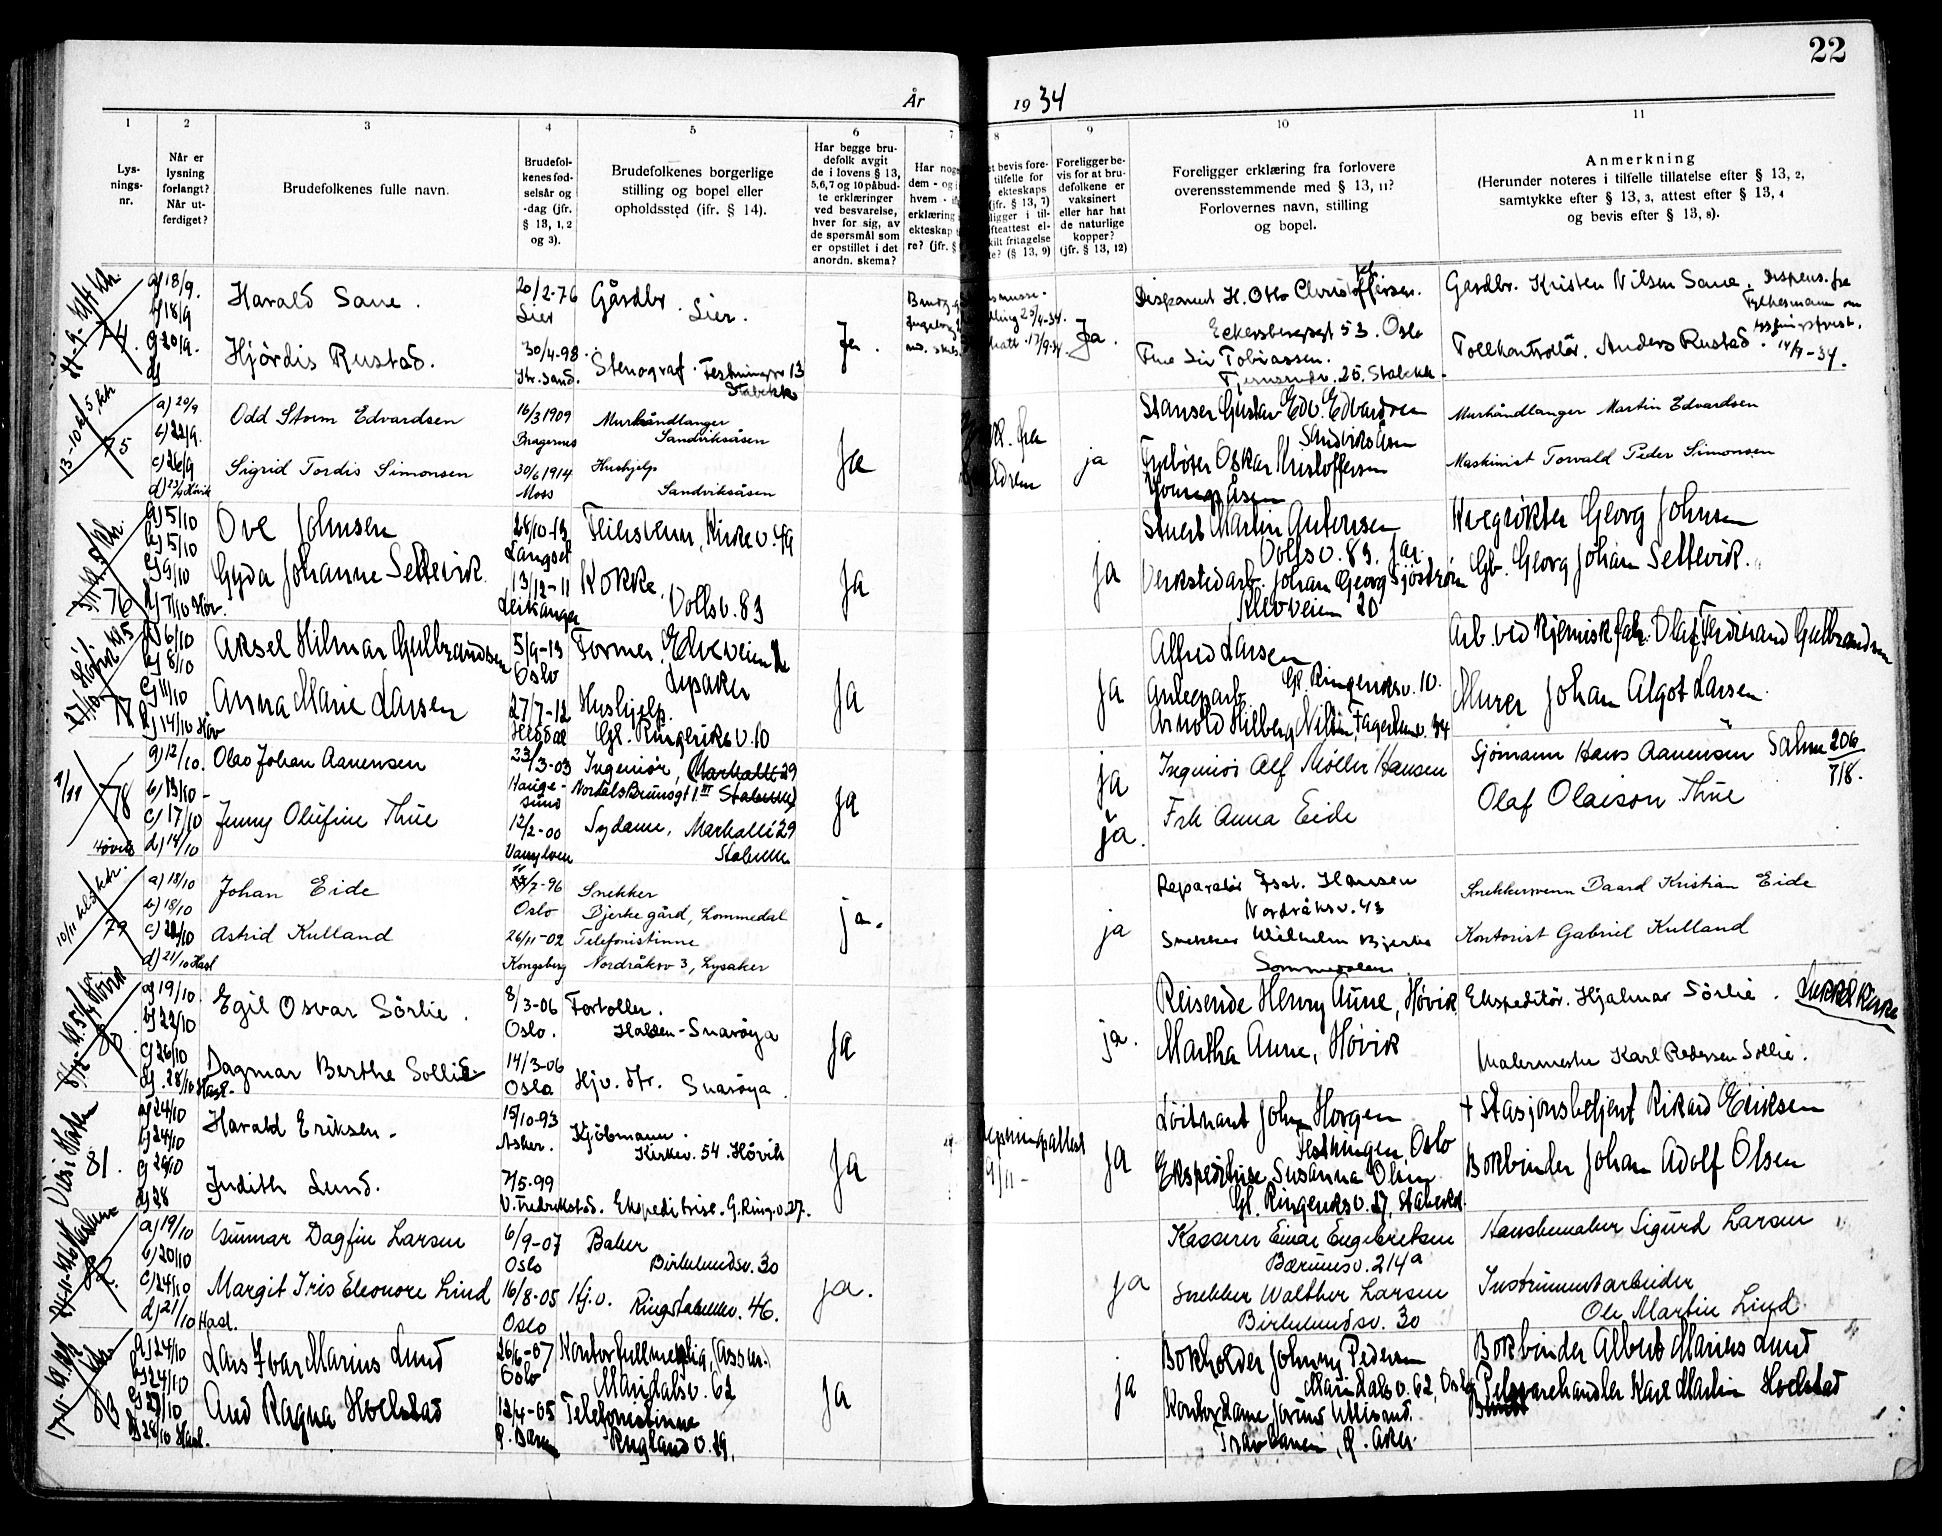 22
År 1934
1
2
3
4
5
6
7
8
9
10
11
Lys-
nings-
nr.
Når er
lysning
forlangt?
Når ut-
ferdiget?
Brudefolkenes fulle navn.
Brudefol-
kenes fød-
selsår og
-dag (jfr.
§ 13, 1, 2
og 3).
Brudefolkenes borgerlige
stilling og bopel eller
opholdssted (ifr. § 14).
Har begge bru-
defolk avgit
de i lovens § 13,
5, 6, 7 og 10 påbud-
te erklæringer
ved besvarelse,
hver for sig, av
de spørsmål som
er opstillet i det
anordn. skema?
Har nog
dem - og
hvem -
erklæring
ekteskap
re? (jfr. §
et bevis fore-
tilfelle for
ekteskaps
(jfr. § 13, 7)
ligger i til-
ifteattest el-
kilt fritagelse
te? (§ 13, 9)
Foreligger be-
vis for at bru-
defolkene er
vaksinert
eller har hat
de naturlige
kopper?
(jfr. § 13, 12)
Foreligger erklæring fra forlovere
overensstemmende med § 13, 11?
Forlovernes navn, stilling
og bopel.
Anmerkning
(Herunder noteres i tilfelle tillatelse efter § 13, 2,
samtykke efter § 13, 3, attest efter § 13, 4
og bevis efter § 13, 8).
74.
a) 18/9.
b) 18/9
c) 20/9.
d)
Harald Sane.
20/2-76
Lier
Gårdbr.
Lier.
Hjördis Rustad.
30/4-98.
Kr.sand.
Stenograf. 13
Stabekk
Ja.
25/4-34.
17/9-34.
Ja.
Disponent H. Otto Christoffersen.
Eckersbergsgt 53. Oslo
Frue Siv Tobiassen.
25. Stabekk.
Gardbr. Kristen Nilsen Sane. Dispens. fra
Fylkesmann om
lysningsfrist.
14/9-34.
Tollkontrollør. Anders Rustad.
75
a) 20/9
b) 22/9.
c) 26/9
d) 23/9 Høvik
Odd Storm Edvardsen
16/3 1909
Bragernes
Murhåndlanger
Sandviksåsen
Sigrid Tordis Simonsen
30/6 1914
Moss
Hushjelp
Sandviksåsen
Ja
ja
Stanser Gustav Edv. Edvardsen
Sandviksåsen
Fyrbøter Oskar Kristoffersen
Murhåndlanger Martin Edvardsen
Maskinist Torvald Peder Simonsen
76
a) 5/10
b) 5/10
c) 9/10
d) 7/10 Høv.
Ove Johnsen
28/10-13
Langset
Feilesvenn, Kirkev. 49
Gyda Johanne Settevik
13/12-11
Leikanger
Kokke,
Vollsv. 83
Ja
ja
Stuert Martin Antonsen
Vollsv. 83. Jar.
Verkstedarb. Johan Georg Sjöström
Klevveien 20
Kvegrøkter Georg Johnsen
Gb. Georg Johan Settevik.
77
a) 6/10
b) 8/10
c) 11/10
d) 14/10 Høv
Aksel Hilmar Gulbrandsen
5/9-13
Oslo
Former. Elveveien
Lysaker
Anna Marie Larsen
27/7-12
Heddal
Hushjelp.
Gl. Ringeriksv. 10
Ja
ja
Alfred Larsen
Anleggsarb. Gl. Ringeriksv. 10.
Arnold Hilberg Nilsen, Fagerheimv. 34
Arb. ved kjemisk fabr. Olaf Ferdinand Gulbrandsen
Murer Johan Algot Larsen.
4/11
78
Høvik
a) 12/10.
b) 13/10 -
c) 17/10
d) 14/10
Olav Johan Aanensen
23/3-03
Hauge-
sund
Ingeniør, Markallé 29
Nordals Brunsgt 1 III Stabekk
Jenny Olufine Thue
12/2-00
Vanylven
Sydame, Markallé 29
Stabekk
Ja
ja
ja.
Ingeniør Alf Møller Hansen
Frk Anna Eide
Sjømann Hans Aanensen
Salme 206
718.
Olaf Olaison Thue
79
a) 18/10
b) 18/10
c) 22/10
d) 21/10 Hasl
Johan Eide
7-96
Oslo
Snekker
Bjerke gård, Lommedal
Astrid Kulland
26/11-02
Kongsberg
Telefonistinne
Nordråksv 3, Lysaker
ja.
ja
Reparatør Hansen
Nordråksv. 43
Snekker Wilhelm Bjerke
Lommedalen
Snekkersvenn Baard Kristian Eide
Kontorist Gabriel Kulland
80
a) 19/10.
b) 22/10
c) 26/10
d). 28/10 Hasl.
Egil Osvar Sörlie.
8/3-06
Oslo.
Fortoller.
Halden - Snarøya
Dagmar Berthe Sollie
14/3-06
Oslo
Hjv. dtr. Snarøya.
Ja
ja.
Reisende Henry Aune, Høvik
Martha Aune, Høvik
Ekspeditør. Hjalmar Sörlie. Lukket Kirke
Malermester Karl Pedersen Sollie.
81.
a) 24/10
b) 24/10
c) 26/10
d) 28
Harald Eriksen.
15/10-93
Asker.
Kjøbmann.
Kirkev. 54. Høvik
Judith Lund.
7/5-99
V. Fredrikstad. Ekspeditrise. G. Ring. v. 27.
Ja
9/11 -
Ja
Løitnant John Horgen
Festningen, Oslo
Ekspeditrise Susanna Olsen
Gl. Ringeriksv. 27, Stabekk
+ Stasjonsbetjent Rikard Eriksen
Bokbinder Johan Adolf Olsen
82.
a) 19/10
b) 20/10
c) 24/10
d) 21/10 Hasl.
Gunnar Dagfin Larsen
6/9-07
Oslo
Baker
Birkelundsv. 30
Margit Iris Eleonore Lind
16/8-05
Oslo
Hj. v. Ringstabekkv. 46.
ja.
ja
Kasserer Einar Engebretsen
Bærumsv. 214a
Snekker Walther Larsen
Birkelundsv. 30
Hanskemaker Sigurd Larsen
Instrumentarbeider
Ole Martin Lind.
83
a) 24/10
b) 24/10
c) 29/10
d) 28/10 Hasl.
Lars Ivar Marius Lund
26/6-07
Oslo
Kontorfullmektig, (Assur.)
Maridalsv. 62
Aud Ragna Hoelstad
12/4-05
Ø. Bærum
Telefonistinne
Ruglandv. 19.
Ja
ja
Bokholder Johnny Pedersen
Maridalsv. 62, Oslo
Kontordame
V. Aker.
Bokbinder Albert Marius Lund
Pelsvarehandler Karl Martin Hoelstad